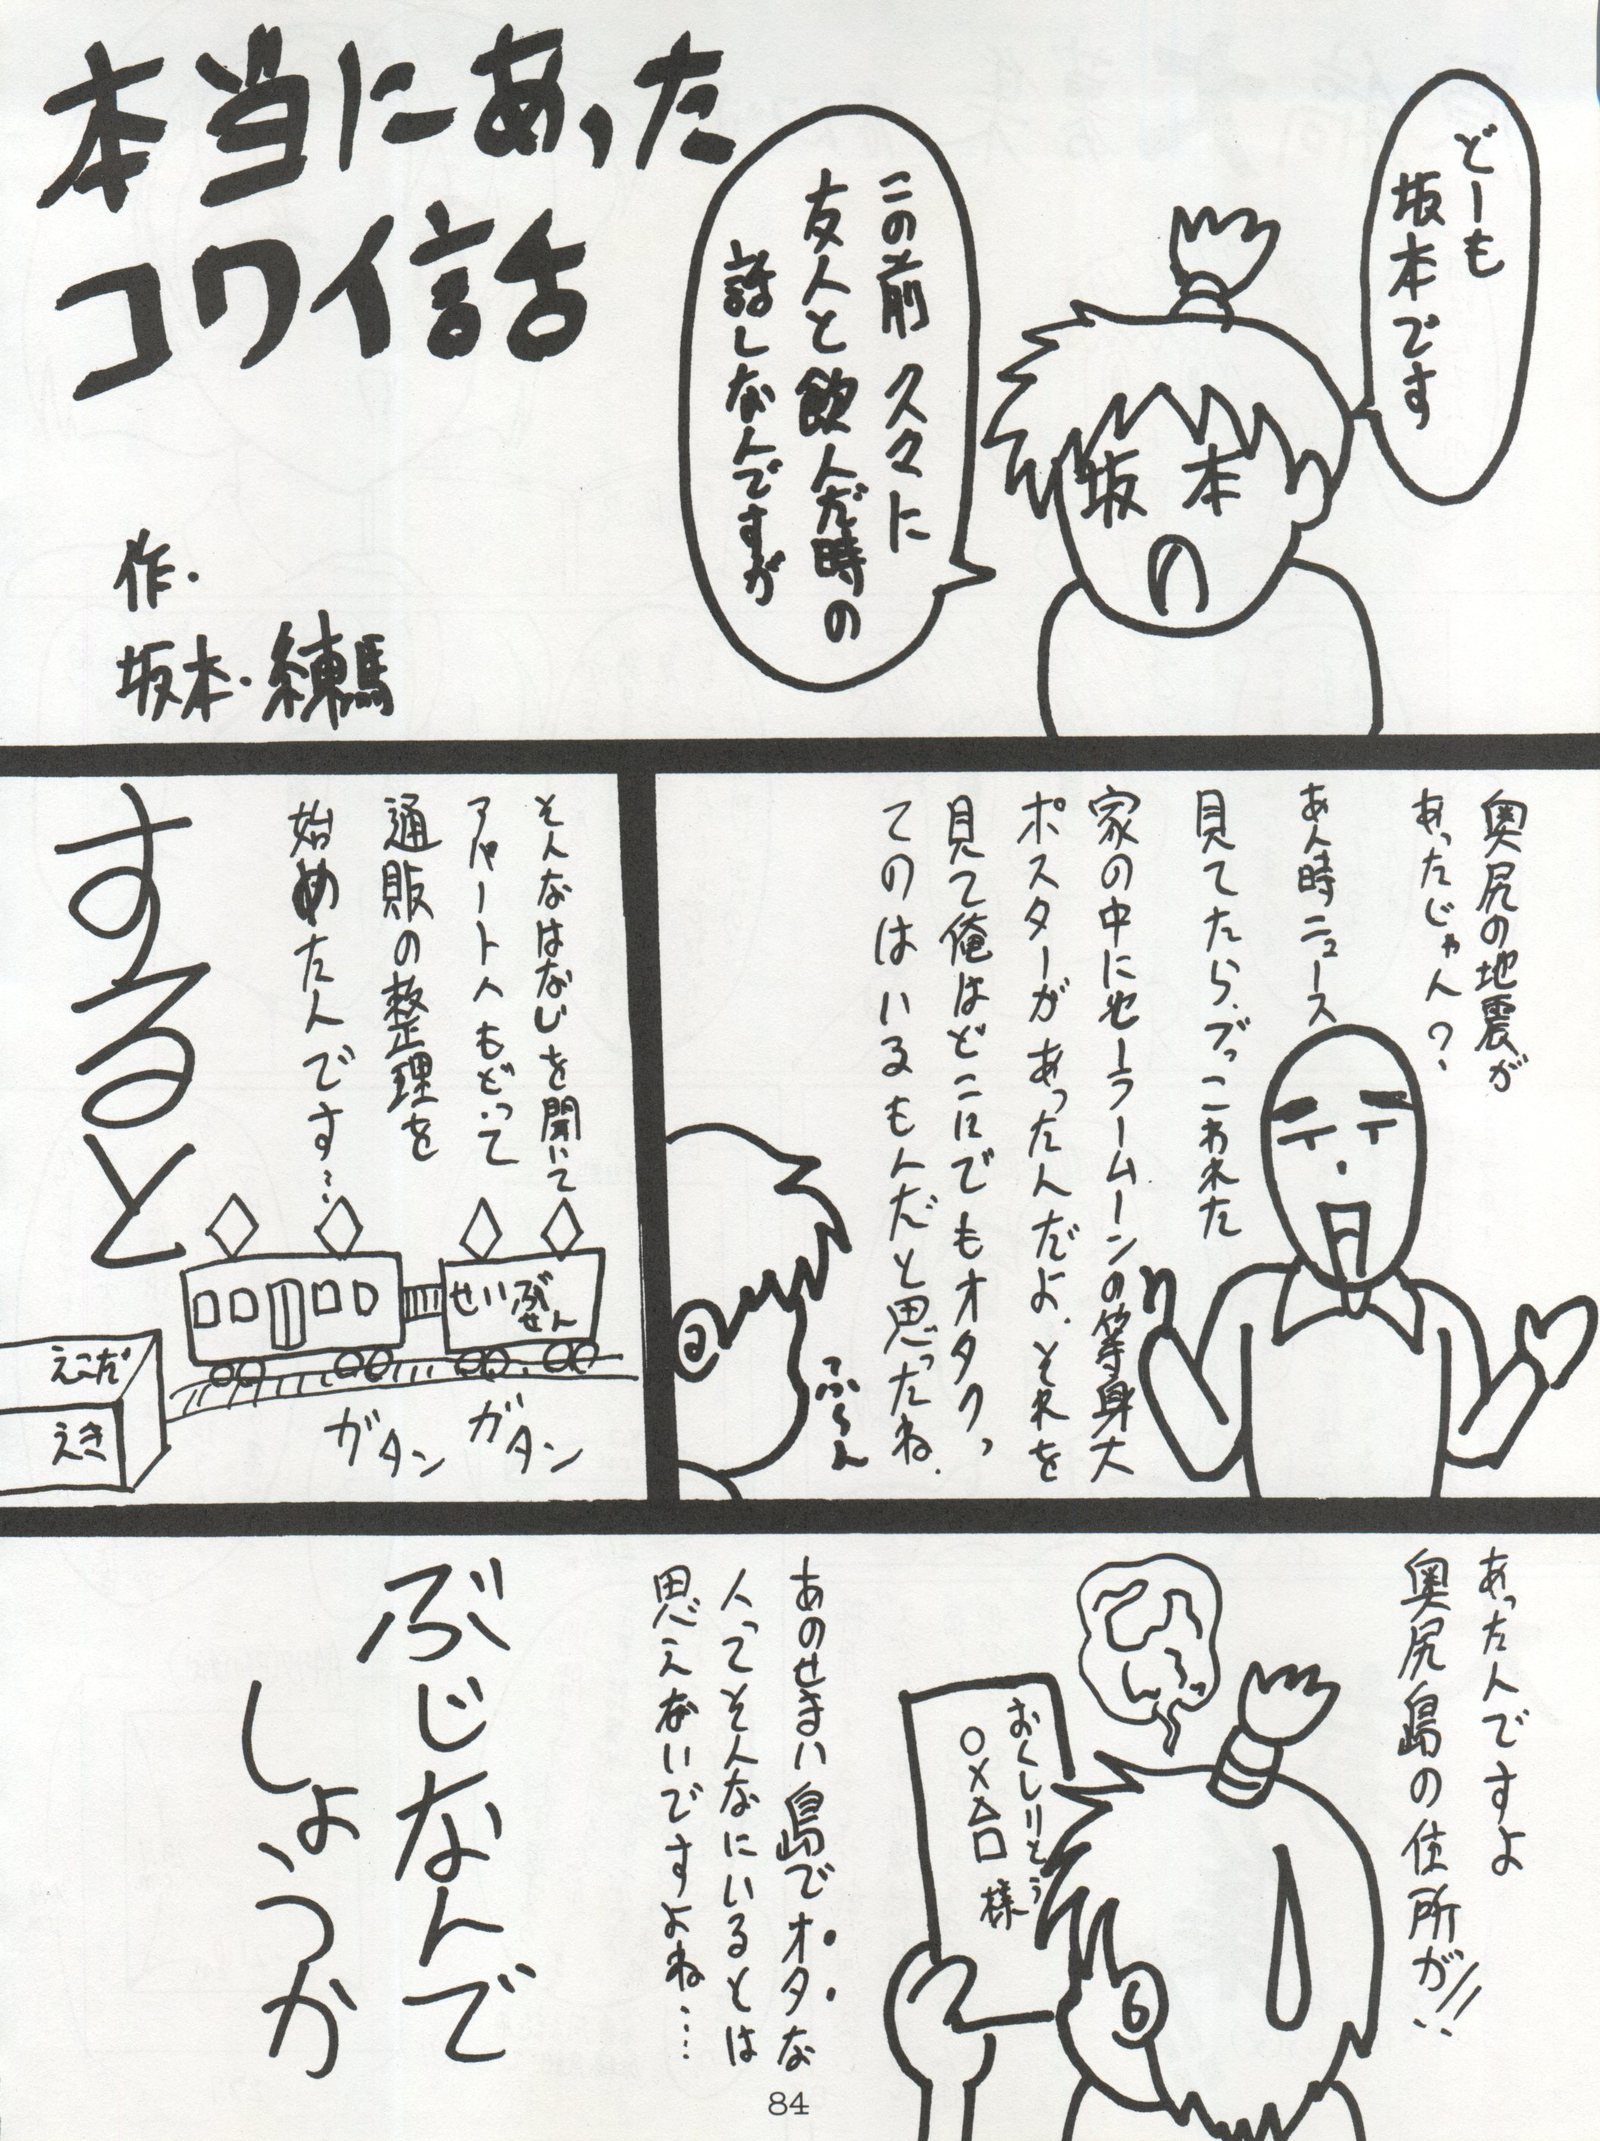 本当にあった
コワイ話
作・
坂本・練馬
どーも
坂本です
坂 本
この前 久々に
友人と飲んだ時の
話しなんですが
奥尻の地震が
あったじゃん?
あん時ニュース
見てたら、ブッこわれた
家の中にセーラームーンの等身大
ポスターがあったんだよ.それを
見て俺はどこにでもオタクっ
てのはいるもんだと思ったね.
ふ〜ん
そんなはなしを聞いて
アパートへもどって
通販の整理を
始めたんです…
すると
せいぶ
せん
えこだ
えき
ガタン
ガタン
あったんですよ
奥尻島の住所が!!
おくしりとう
○×△□ 様
あのせまい島でオタな
人ってそんなにいるとは
思えないですよね…
ぶじなんで
しょうか
84